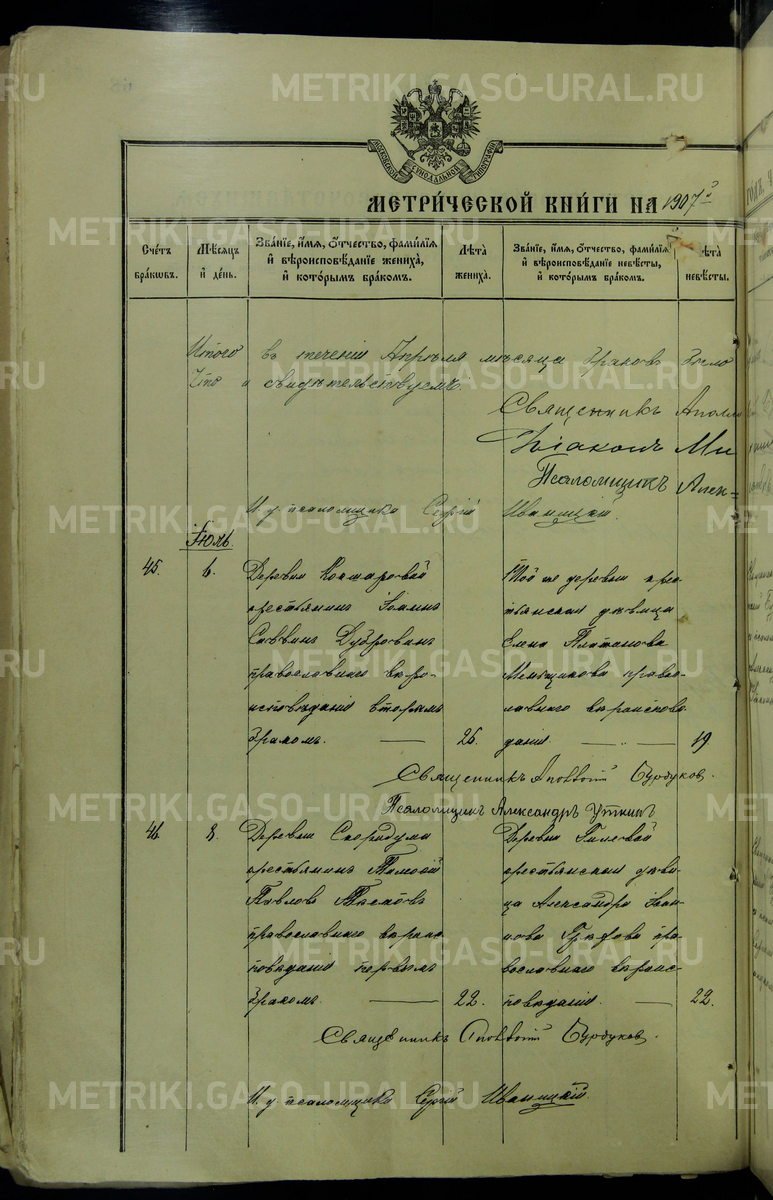 МОСКОВСКОЙ СИНОДАЛЬНОЙ ТИПОГРАФІИ
МЕТРИ́ЧЕСКОЙ КНИ́ГИ НА 1907й
Сче́тъ бра́кωвъ.
Мѣ́сяцъ и де́нь.
Зва́нїе, и́мѧ, о́тчество, фами́лїѧ и вѣроисповѣ́данїе жениха̀, и кото́рымъ бра́комъ.
Лѣ́та жениха̀.
Зва́нїе, и́мѧ, о́тчество, фами́лїѧ и вѣроисповѣ́данїе невѣ́сты, и кото́рымъ бра́комъ.
Лѣ́та невѣ́сты.
Итого въ теченіи Апрѣля мѣсяца браковъ было
Что и свидѣтельствуемъ:
Священникъ Аполло
Діаконъ Ми
Псаломщикъ Алек-
И. д. псаломщика Сергій Иваницкій.
Іюль.
45. 6.
Деревни
крестьянинъ Іоаннъ
Саввинъ Дубровинъ
православнаго вѣро-
исповѣданія вторымъ
бракомъ. — 26.
Той же деревни крес-
тьянская дѣвица
Елена Платонова
Меньшикова право-
славнаго вѣроисповѣ-
данія — 19
Священникъ Бурдуков.
Псаломщикъ Александръ Уткинъ
46 8.
Деревни Скородума
крестьянинъ
Павловъ
православнаго вѣроис-
повѣданія первымъ
бракомъ. — 22.
Деревни Гилевой
крестьянская дѣви-
ца Александра Іоан-
нова пра-
вославнаго вѣроис-
повѣданія. — 22.
Священникъ Бурдуков.
И. д. псаломщика Сергій Иваницкій.
METRIKI.GASO-URAL.RU